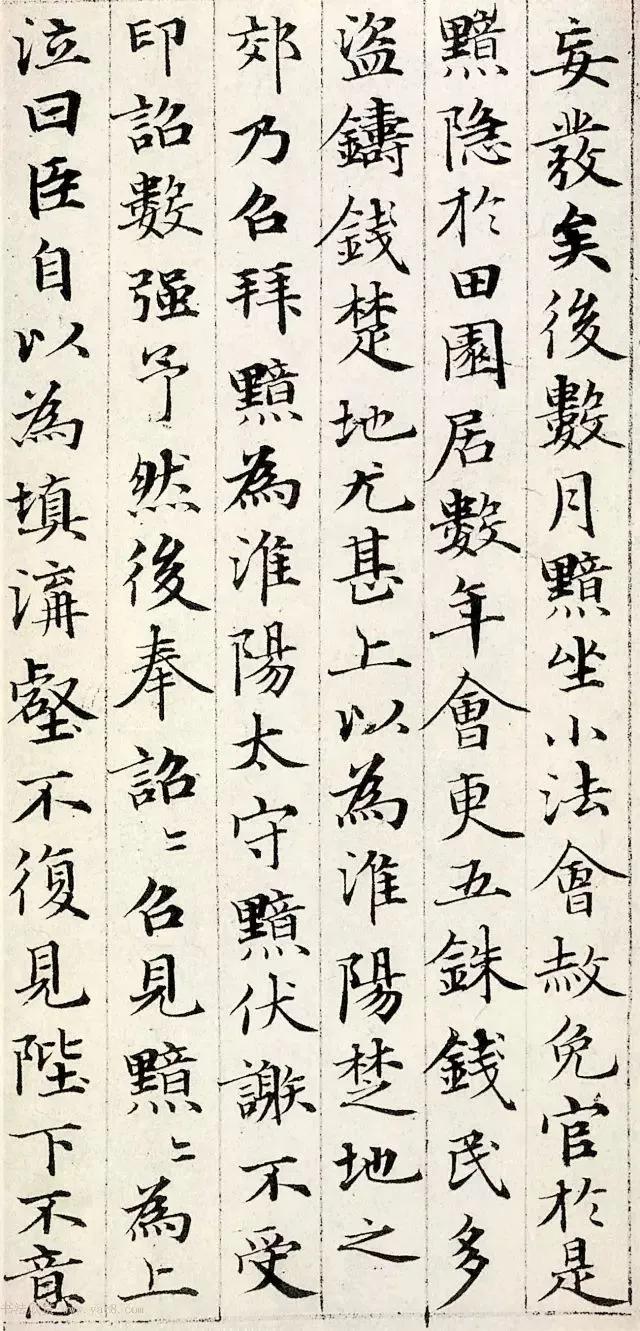 妄發矣後數月黯坐小法會赦免官於是
黯隱於田園居數年會更五銖錢民多
盜鑄錢楚地尤甚上以為淮陽楚地之
郊乃召拜黯為淮陽太守黯伏謝不受
印詔數強予然後奉詔〻召見黯〻為上
泣曰臣自以為填溝壑不復見陛下不意